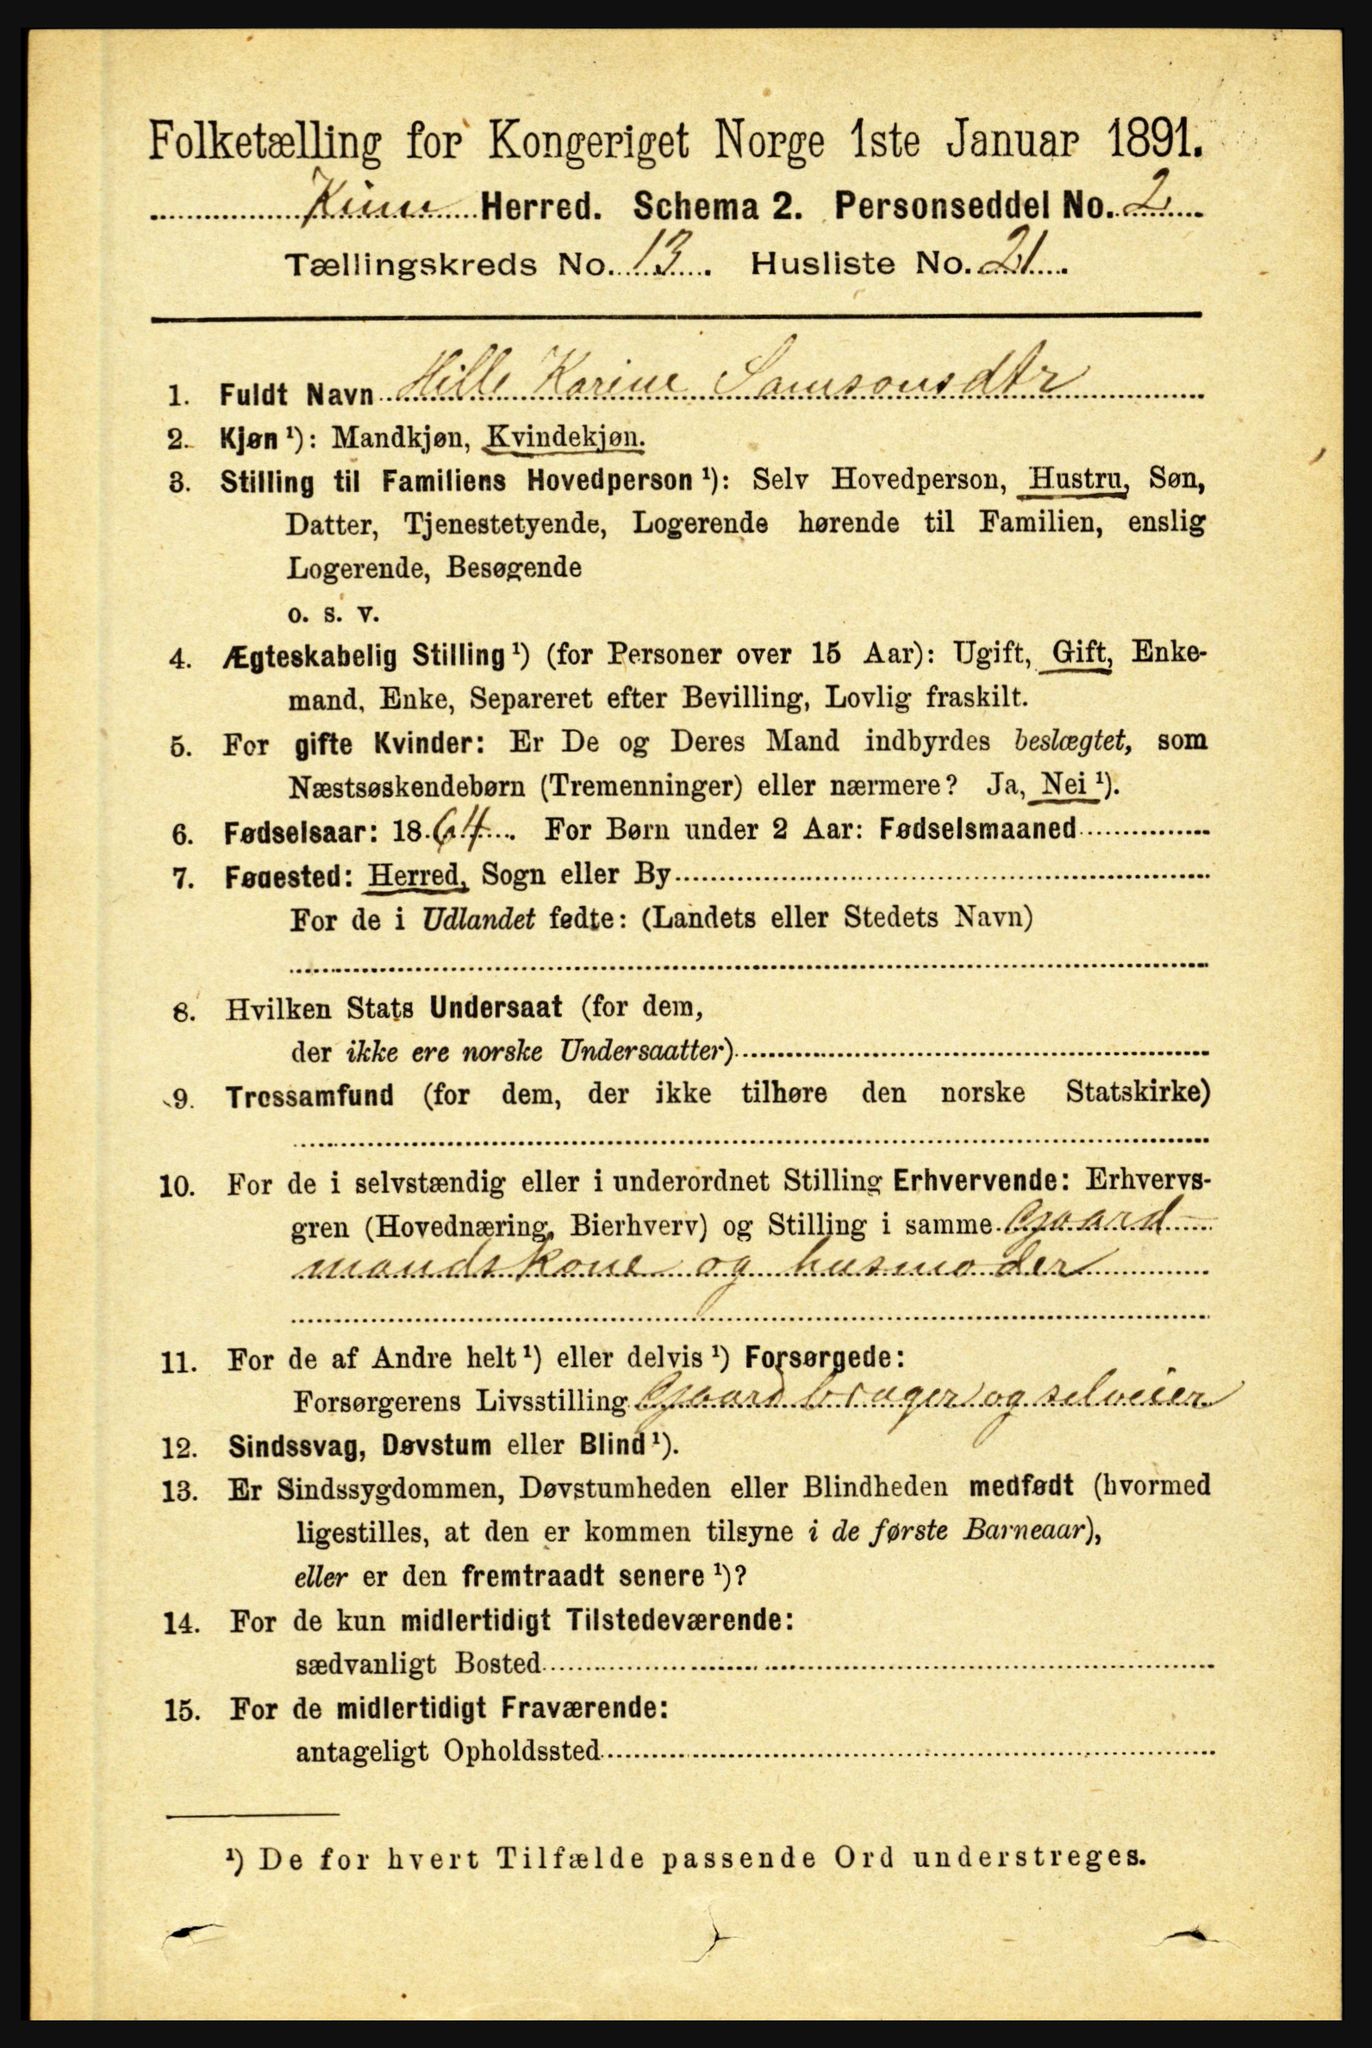 Folketælling for Kongeriget Norge 1ste Januar 1891.
Kinn Herred. Schema 2. Personseddel No. 2
Tællingskreds No. 13. Husliste No. 21
1. Fuldt Navn Hille Karine Samsonsdtr
2. Kjøn ¹): Mandkjøn, Kvindekjøn.
3. Stilling til Familiens Hovedperson ¹): Selv Hovedperson, Hustru, Søn,
Datter, Tjenestetyende, Logerende hørende til Familien, enslig
Logerende, Besøgende
o. s. v.
4. Ægteskabelig Stilling ¹) (for Personer over 15 Aar): Ugift, Gift, Enke-
mand, Enke, Separeret efter Bevilling, Lovlig fraskilt.
5. For gifte Kvinder: Er De og Deres Mand indbyrdes beslægtet, som
Næstsøskendebørn (Tremenninger) eller nærmere? Ja, Nei ¹).
6. Fødselsaar: 1864. For Børn under 2 Aar: Fødselsmaaned
7. Fødested: Herred, Sogn eller By
For de i Udlandet fødte: (Landets eller Stedets Navn)
8. Hvilken Stats Undersaat (for dem,
der ikke ere norske Undersaatter)
9. Trossamfund (for dem, der ikke tilhøre den norske Statskirke)
10. For de i selvstændig eller i underordnet Stilling Erhvervende: Erhvervs-
gren (Hovednæring, Bierhverv) og Stilling i samme Gaard
mandskone og husmoder
11. For de af Andre helt ¹) eller delvis ¹) Forsørgede:
Forsørgerens Livsstilling Gaardbruger og selveier
12. Sindssvag, Døvstum eller Blind ¹).
13. Er Sindssygdommen, Døvstumheden eller Blindheden medfødt (hvormed
ligestilles, at den er kommen tilsyne i de første Barneaar),
eller er den fremtraadt senere ¹)?
14. For de kun midlertidigt Tilstedeværende:
sædvanligt Bosted
15. For de midlertidigt Fraværende:
antageligt Opholdssted
¹) De for hvert Tilfælde passende Ord understreges.